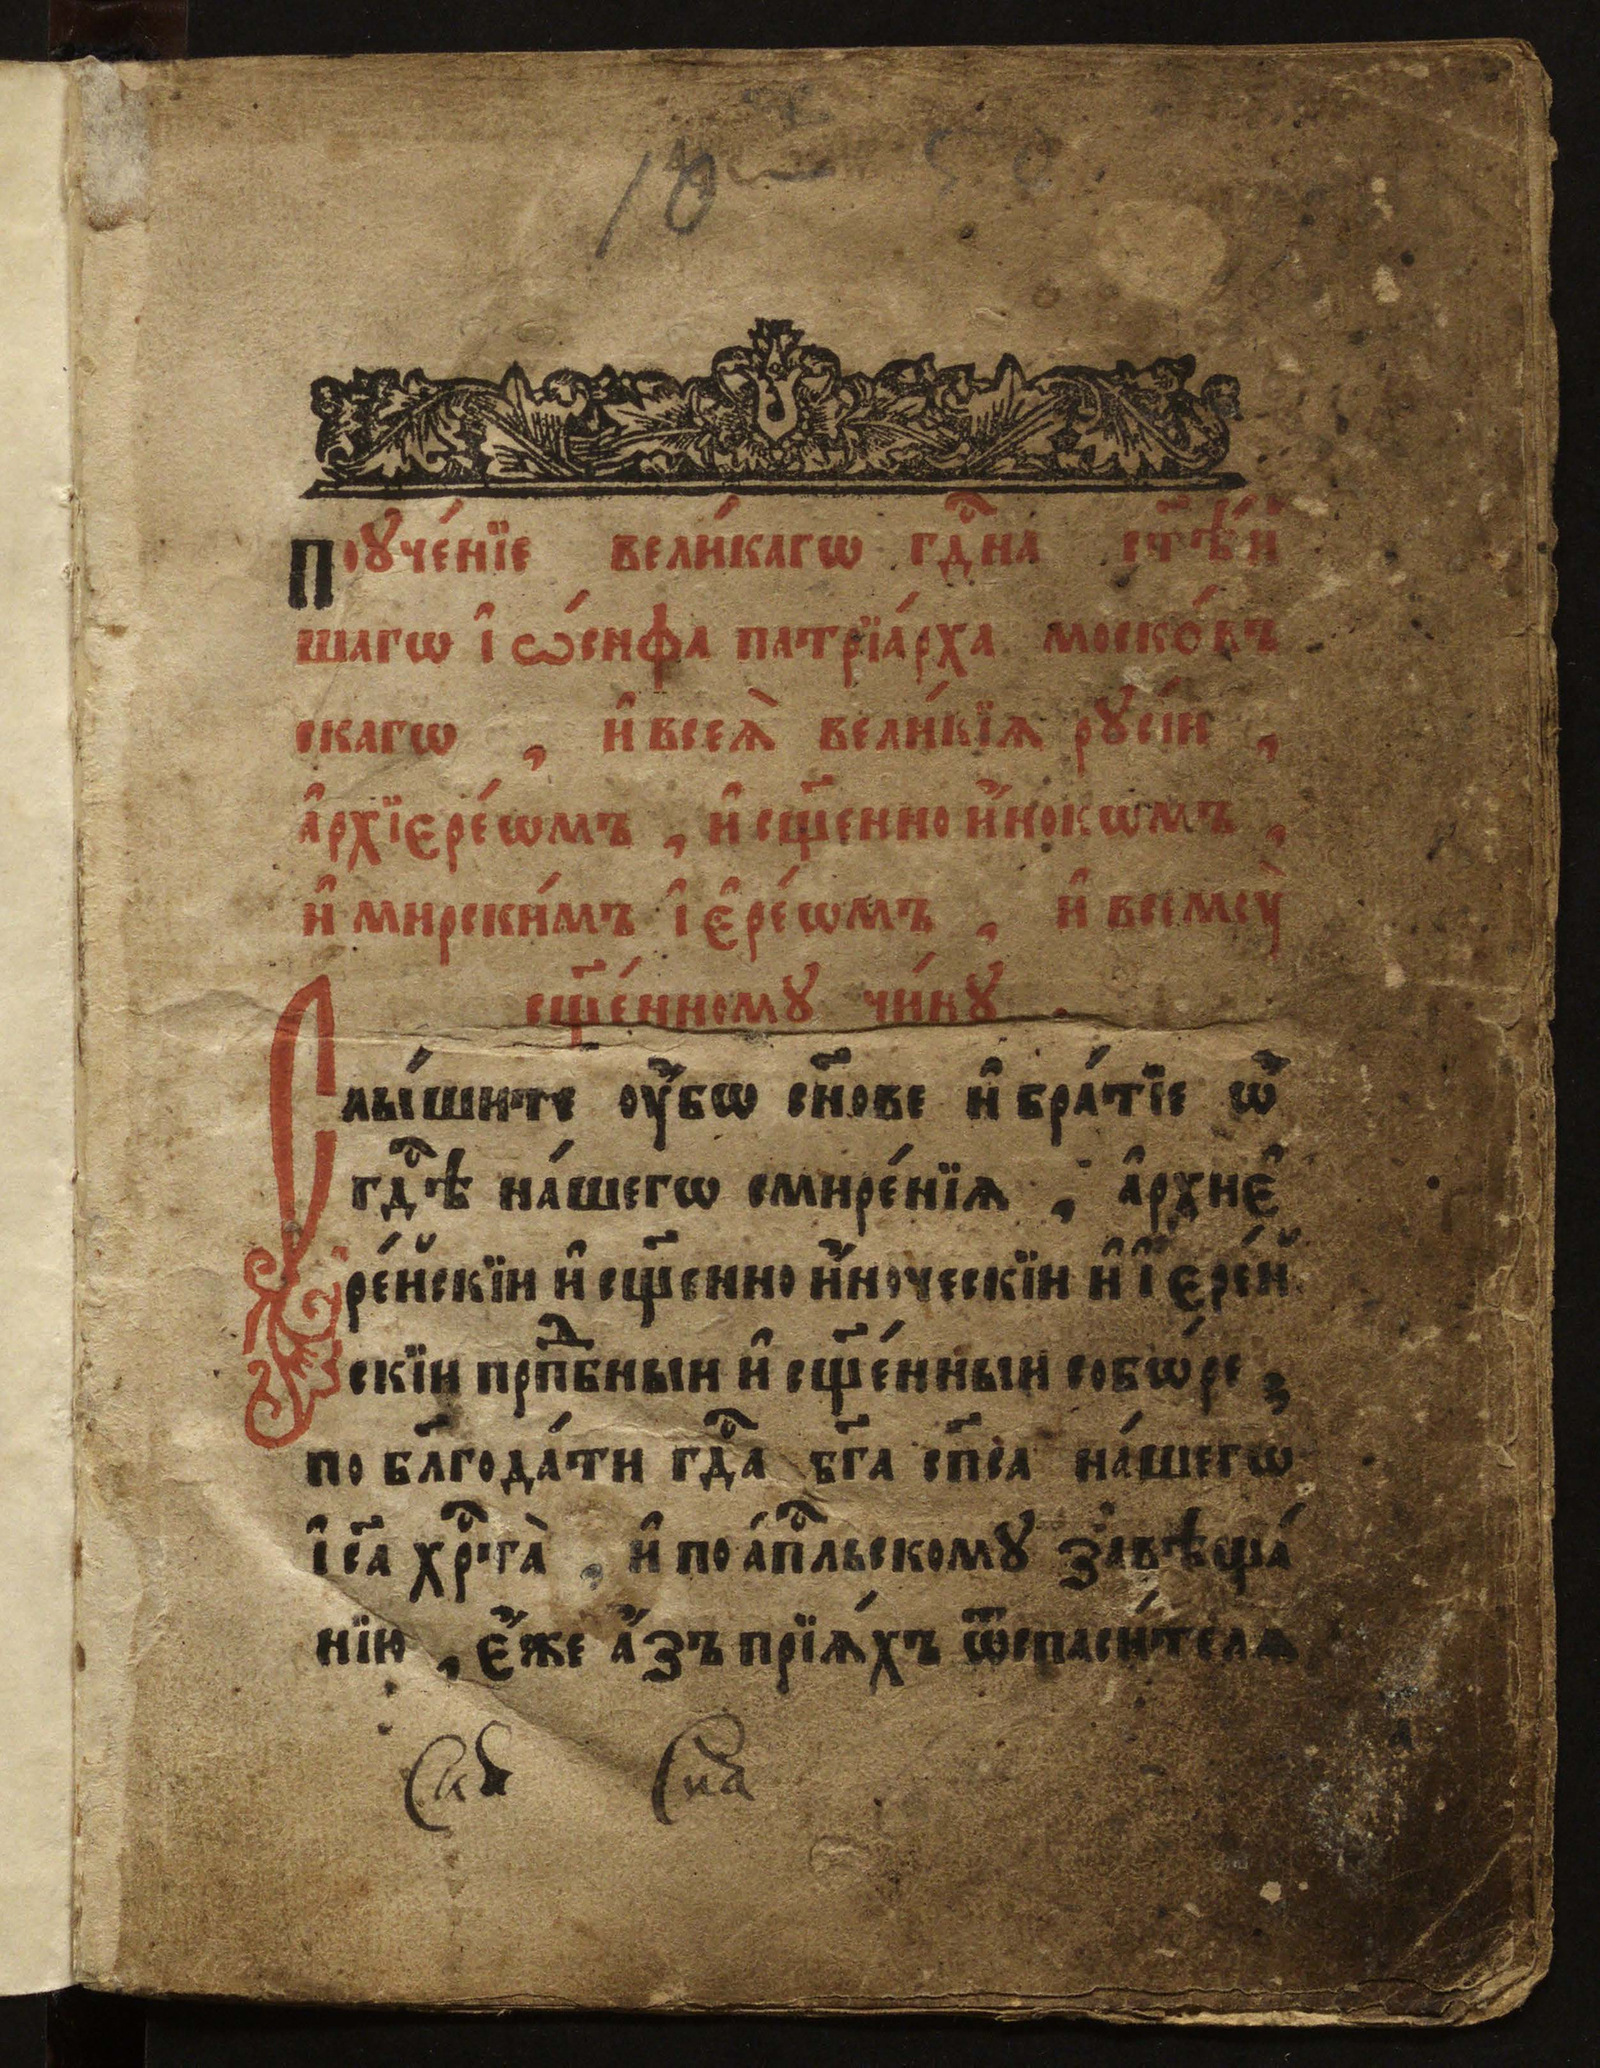 Поꙋче́нїе вели́кагѡ гдⷭ҇на ст҃ѣ́й
шагѡ і҆ѡ́сифа патрїа́рха моско́въ
скагѡ , и҆ всеѧ̀ вели́кїѧ рꙋсі́и ,
а҆рхїере́ѡмъ , и҆ сщ҃енно и҆́нокѡмъ ,
и҆ мирски́мъ і҆ є҆ре́ѡмъ , и҆ всемꙋ̀
сщ҃е́нномꙋ чи́нꙋ .
Слы́шите оу҆́бѡ сн҃ове и҆ бра́тїе ѡ҆
гдⷭ҇ѣ на́шегѡ смире́нїѧ , а҆рхиє҆
ре́йскїи и҆ сщ҃енно и҆́ноческїи и҆ і҆ є҆ре́й
скїи прпⷣбныи и҆ сщ҃е́нныи собѡ́ре ,
по бл҃года́ти гдⷭ҇а бг҃а сп҃са на́шегѡ
і҆ с҃а хрⷭ҇та̀ , и҆ по а҆пⷭ҇льскомꙋ завѣща́
нїю , є҆́же а҆́зъ прїѧ́хъ ѿ спаси́телѧ